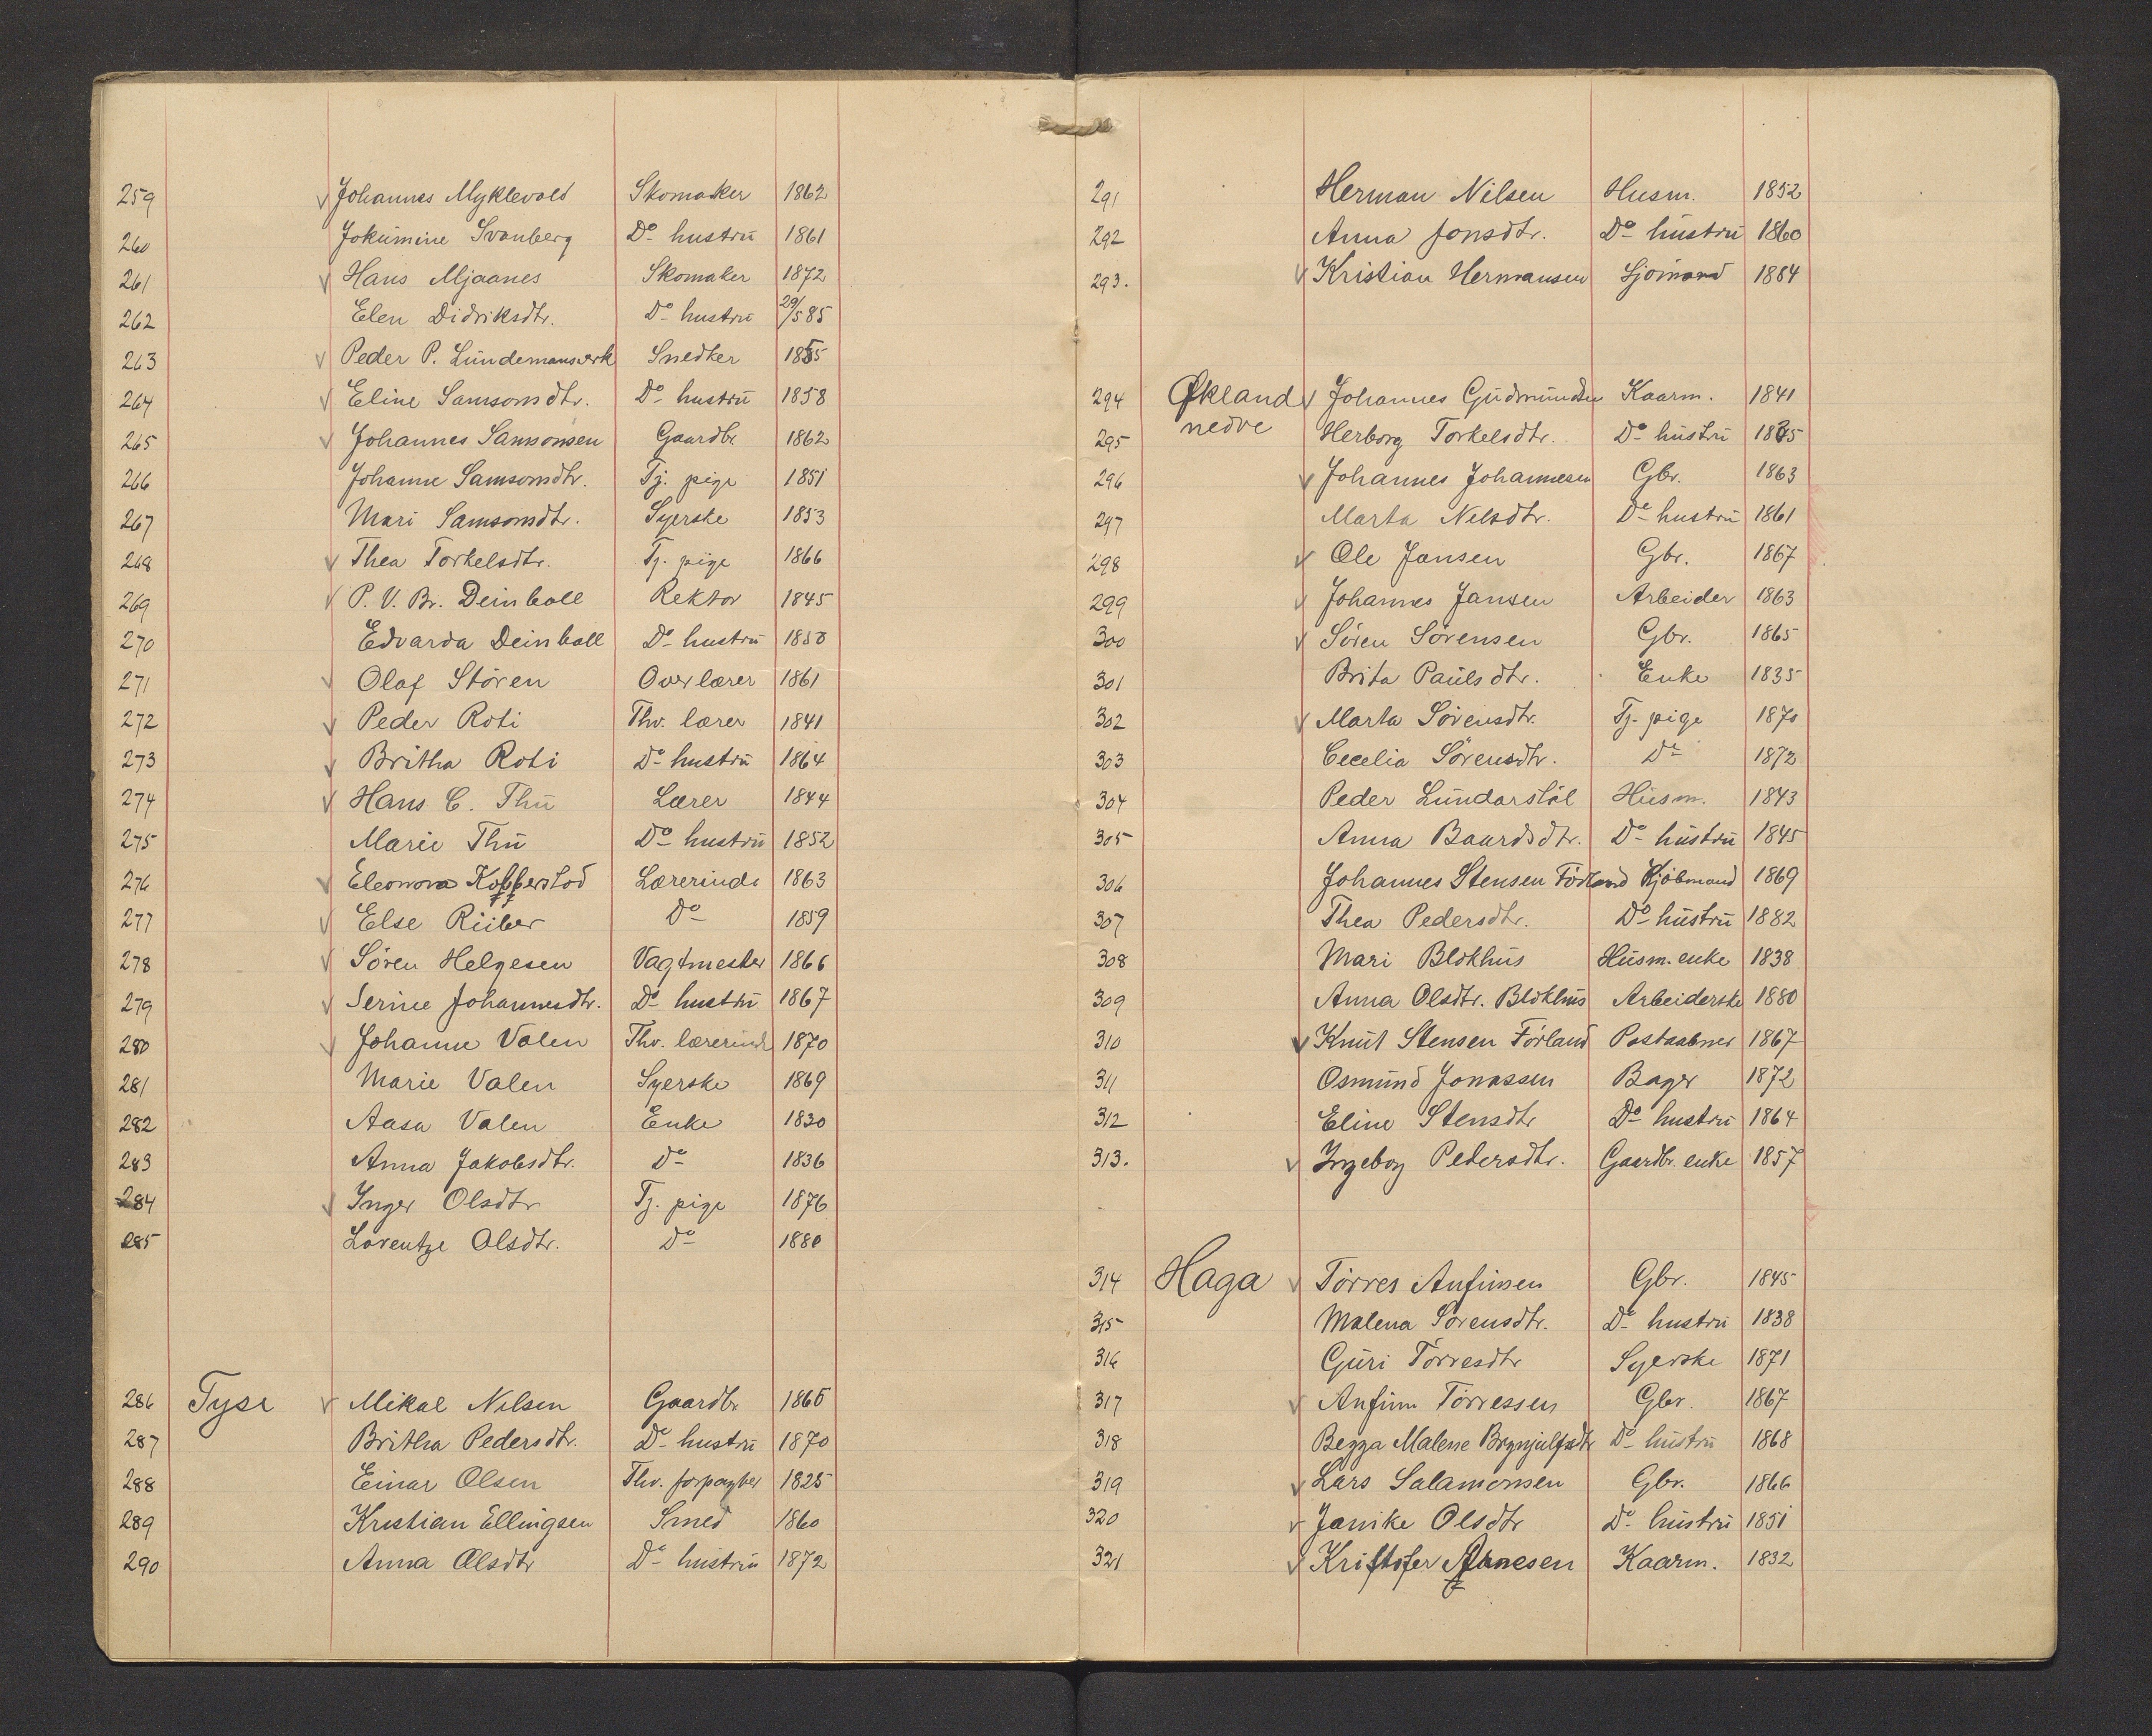 259 Johannes Myklevold Skomaker 1862
260 Jokumine Svanberg Do hustru 1861
261 Hans Mjaanes Skomaker 1872
262 Elen Didriksdtr. Do hustru 29/5 85
263 Peder P. Lundemansverk Snedker 1855
264 Eline Samsonsdtr. Do hustru 1858
265 Johannes Samsonsen Gaardbr 1862
266 Johanne Samsonsdtr. Tj. pige 1851
267 Mari Samsonsdtr. Syerske 1853
268 Thea Torkelsdtr. Tj. pige 1866
269 P. V. Br. Deinboll Rektor 1845
270 Edvarda Deinboll Do hustru 1850
271 Olaf Stören Overlærer 1861
272 Peder Roti Thv. lærer 1841
273 Britha Roti Do hustru 1864
274 Hans C. Thu Lærer 1844
275 Marie Thu Do hustru 1852
276 Eleonora Kofferstod Lærerinde 1863
277 Else Riiber Do 1859
278 Sören Helgesen Vagtmester 1866
279 Serine Johannesdtr. Do hustru 1867
280 Johanne Valen Thv. lærerinde 1870
281 Marie Valen Syerske 1869
282 Aasa Valen Enke 1830
283 Anna Jakobsdtr. Do 1836
284 Inger Olsdtr Tj. pige 1876
285 Lorentze Olsdtr. Do 1880
286 Tyse Mikal Nilsen Gaardbr 1865
287 Britha Pedersdtr. Do hustru 1870
288 Einar Olsen Thv. forpagter 1825
289 Kristian Ellingsen Smed 1860
290 Anna Olsdtr Do hustru 1872
291 Herman Nilsen Husm. 1852
292 Anna Jonsdtr. Do hustru 1860
293. Kristian Hermansen Sjömand 1884
294 Økland Johannes Gudmundsen Kaarm. 1841
nedre
295 Herborg Torkelsdtr. Do hustru 1835
296 Johannes Johannesen Gbr. 1863
297 Marta Nelsdtr. Do hustru 1861
298 Ole Jansen Gbr. 1867
299 Johannes Jansen Arbeider 1863
300 Sören Sörensen Gbr. 1865
301 Brita Paulsdtr. Enke 1835
302 Marta Sörensdtr. Tj. pige 1870
303 Cecelia Sörensdtr. Do 1872
304 Peder Lundarstöl Husm. 1843
305 Anna Baardsdtr. Do hustru 1845
306 Johannes Stensen Förland Kjöbmand 1869
307 Thea Pedersdtr. Do hustru 1882
308 Mari Blokhus Husm. enke 1838
309 Anna Olsdtr. Blokhus Arbeiderske 1880
310 Knut Stensen Förland Postaabner 1867
311 Osmund Jonassen Bager 1872
312 Eline Stensdtr Do hustru 1864
313. Ingeborg Pedersdtr. Gaardbr. enke 1857
314 Haga Törres Anfinsen Gbr. 1845
315 Malena Sörensdtr. Do hustru 1838
316 Guri Törresdtr Syerske 1871
317 Anfinn Törressen Gbr. 1867
318 Begga Malene Brynjulfsdtr Do hustru 1868
319 Lars Salamonsen Gbr. 1866
320 Janike Olsdtr Do hustru 1851
321 Kristofer Kaarm. 1832